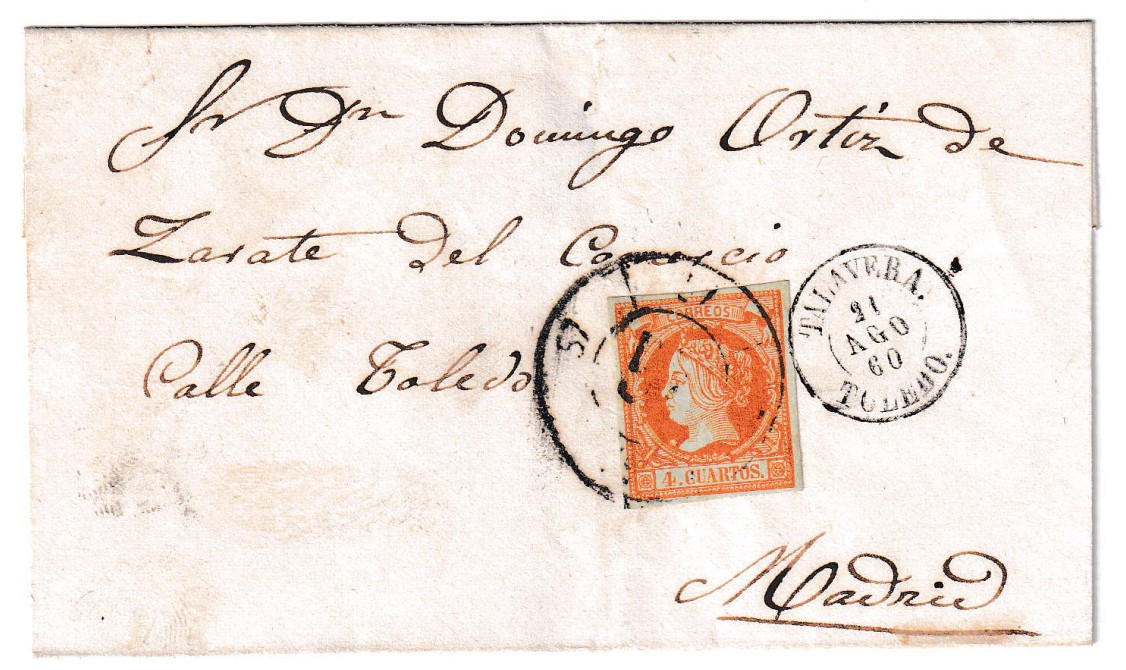 Sr Dn Domingo Ortiz de
Zarate del Comercio
Calle Toledo
Madrid
CORREOS
4. CUARTOS.
TALAVERA.
21
AGO
60
TOLEDO.
57
1